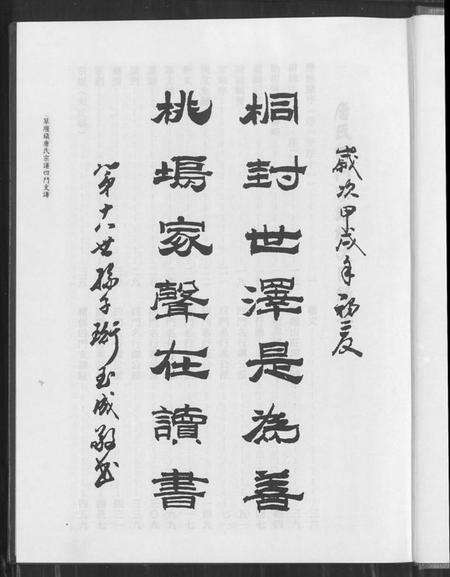 歲次甲戌年初夏
桐封世澤是為善
桃塢家聲在讀書
第十八世孫子衡玉成敬書
草堰鎮唐氏宗譜四門支譜